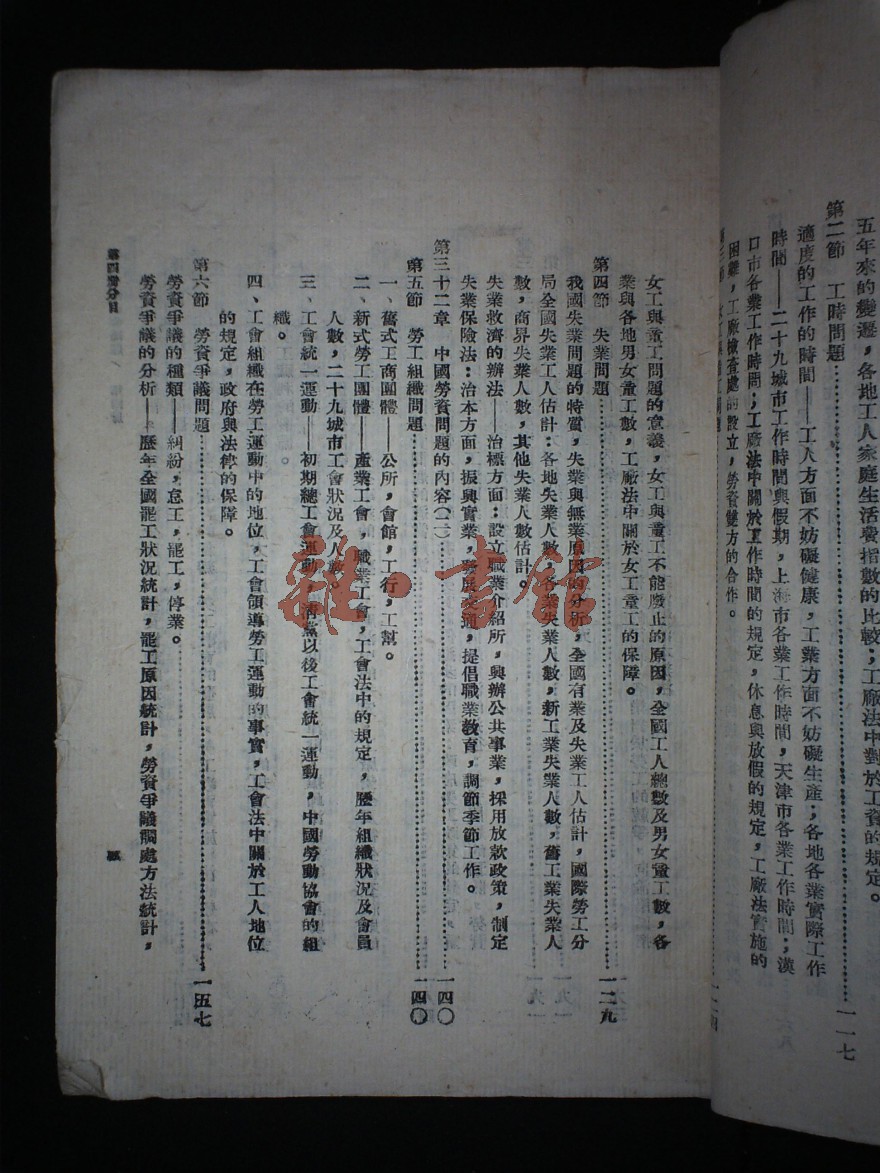 五年來的變遷，各地工人家庭生活費指數的比較；工廠法中對於工資的規定。
第二節　工時問題……一一七
適度的工作的時間——工人方面不妨礙健康，工業方面不妨礙生產；各地各業實際工作
時間——二十九城市工作時間與假期，上海市各業工作時間，天津市各業工作時間；漢
口市各業工作時間；工廠法中關於工作時間的規定，休息與放假的規定，工廠法實施的
困難，工廠檢查處的設立，勞資雙方的合作。
女工與童工問題的意義，女工與童工不能廢止的原因，全國工人總數及男女童工數，各
業與各地男女童工數，工廠法中關於女工童工的保障。
第四節　失業問題……一二九
我國失業問題的特質，失業與無業原因的分析，全國有業及失業工人估計，國際勞工分
局全國失業工人估計：各地失業人數，各業失業人數，新工業失業人數，舊工業失業人
數，商界失業人數，其他失業人數估計。
失業救濟的辦法——治標方面：設立職業介紹所，興辦公共事業，採用放款政策，制定
失業保險法：治本方面，振興實業，發展交通，提倡職業教育，調節季節工作。
第三十二章　中國勞資問題的內容（二）……一四〇
第五節　勞工組織問題……一四〇
一、舊式工商團體——公所，會館，工行，工幫。
二、新式勞工團體——產業工會，職業工會，工會法中的規定，歷年組織狀況及會員
人數，二十九城市工會狀況及人數
三、工會統一運動——初期總工會運動，清黨以後工會統一運動，中國勞動協會的組
織。
四、工會組織在勞工運動中的地位，工會領導勞工運動的事實，工會法中關於工人地位
的規定，政府與法律的保障。
第六節　勞資爭議問題……一五七
勞資爭議的種類——糾紛，怠工，罷工，停業。
勞資爭議的分析——歷年全國罷工狀況統計，罷工原因統計，勞資爭議調處方法統計，
第四分目
雜·書館